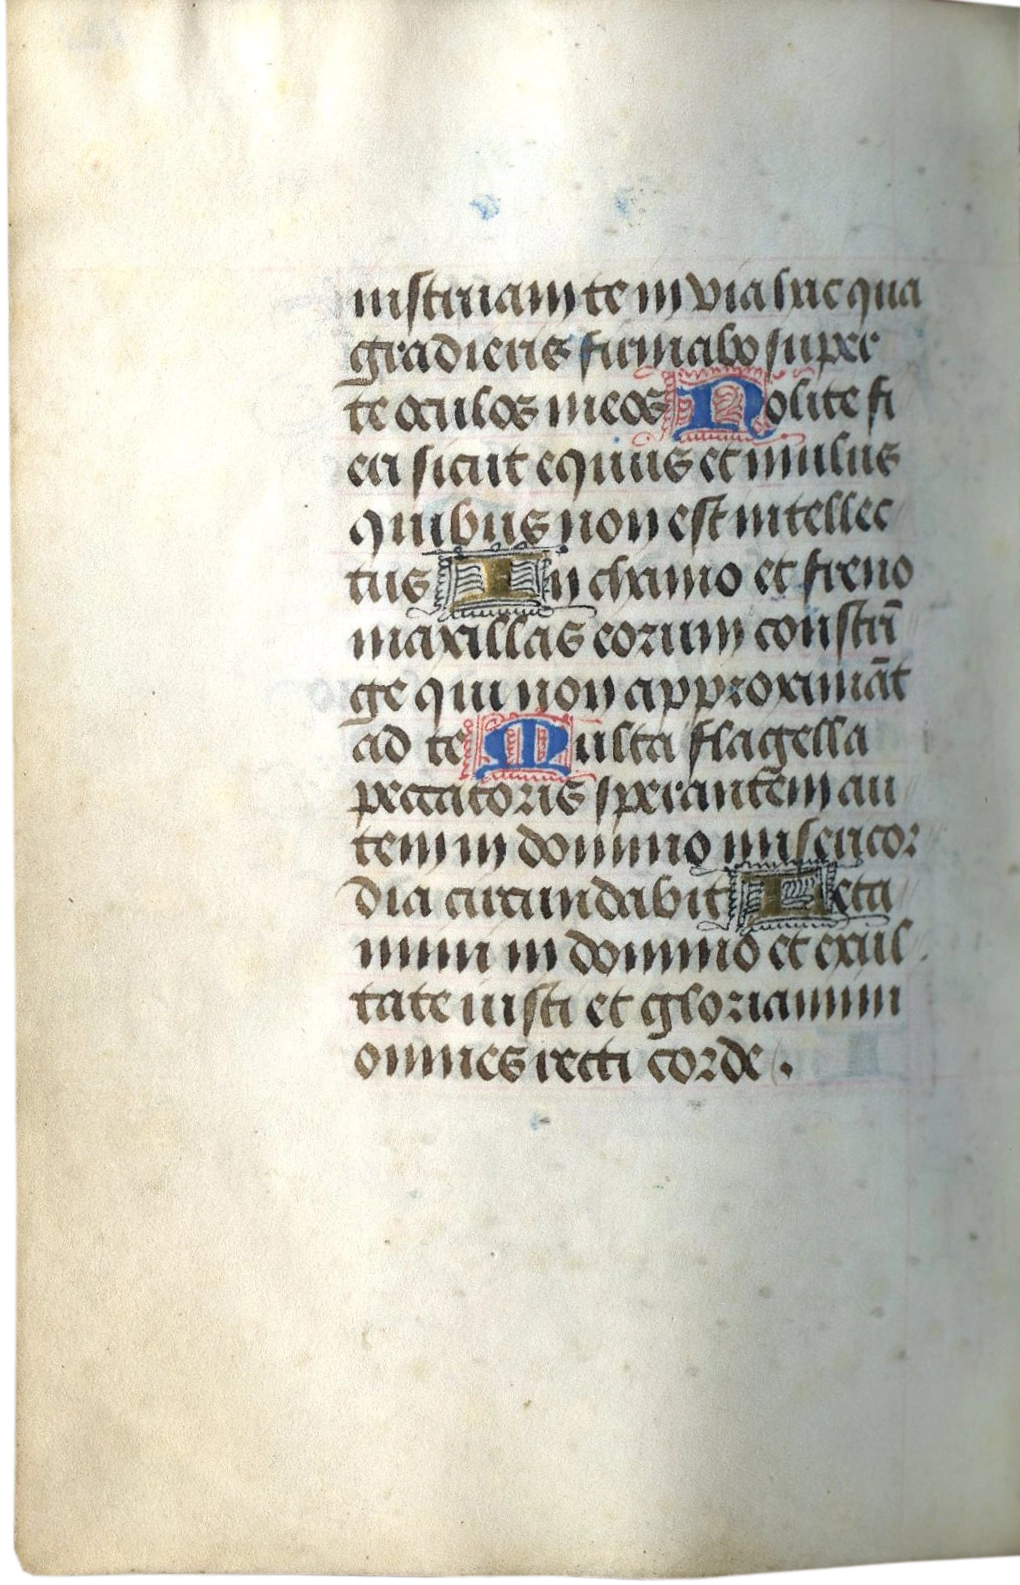 instruam te in via hac qua
gradieris firmabo super
te oculos meos Nolite fi
eri sicut equus et mulus
quibus non est intellec
tus In chamo et freno
maxillas eorum constrī
ge qui non approximāt
ad te Multa flagella
peccatoris sperantem au
tem in domino misericor
dia circundabit Leta
mini in domino et exul
tate iusti et gloriamini
omnes recti corde .